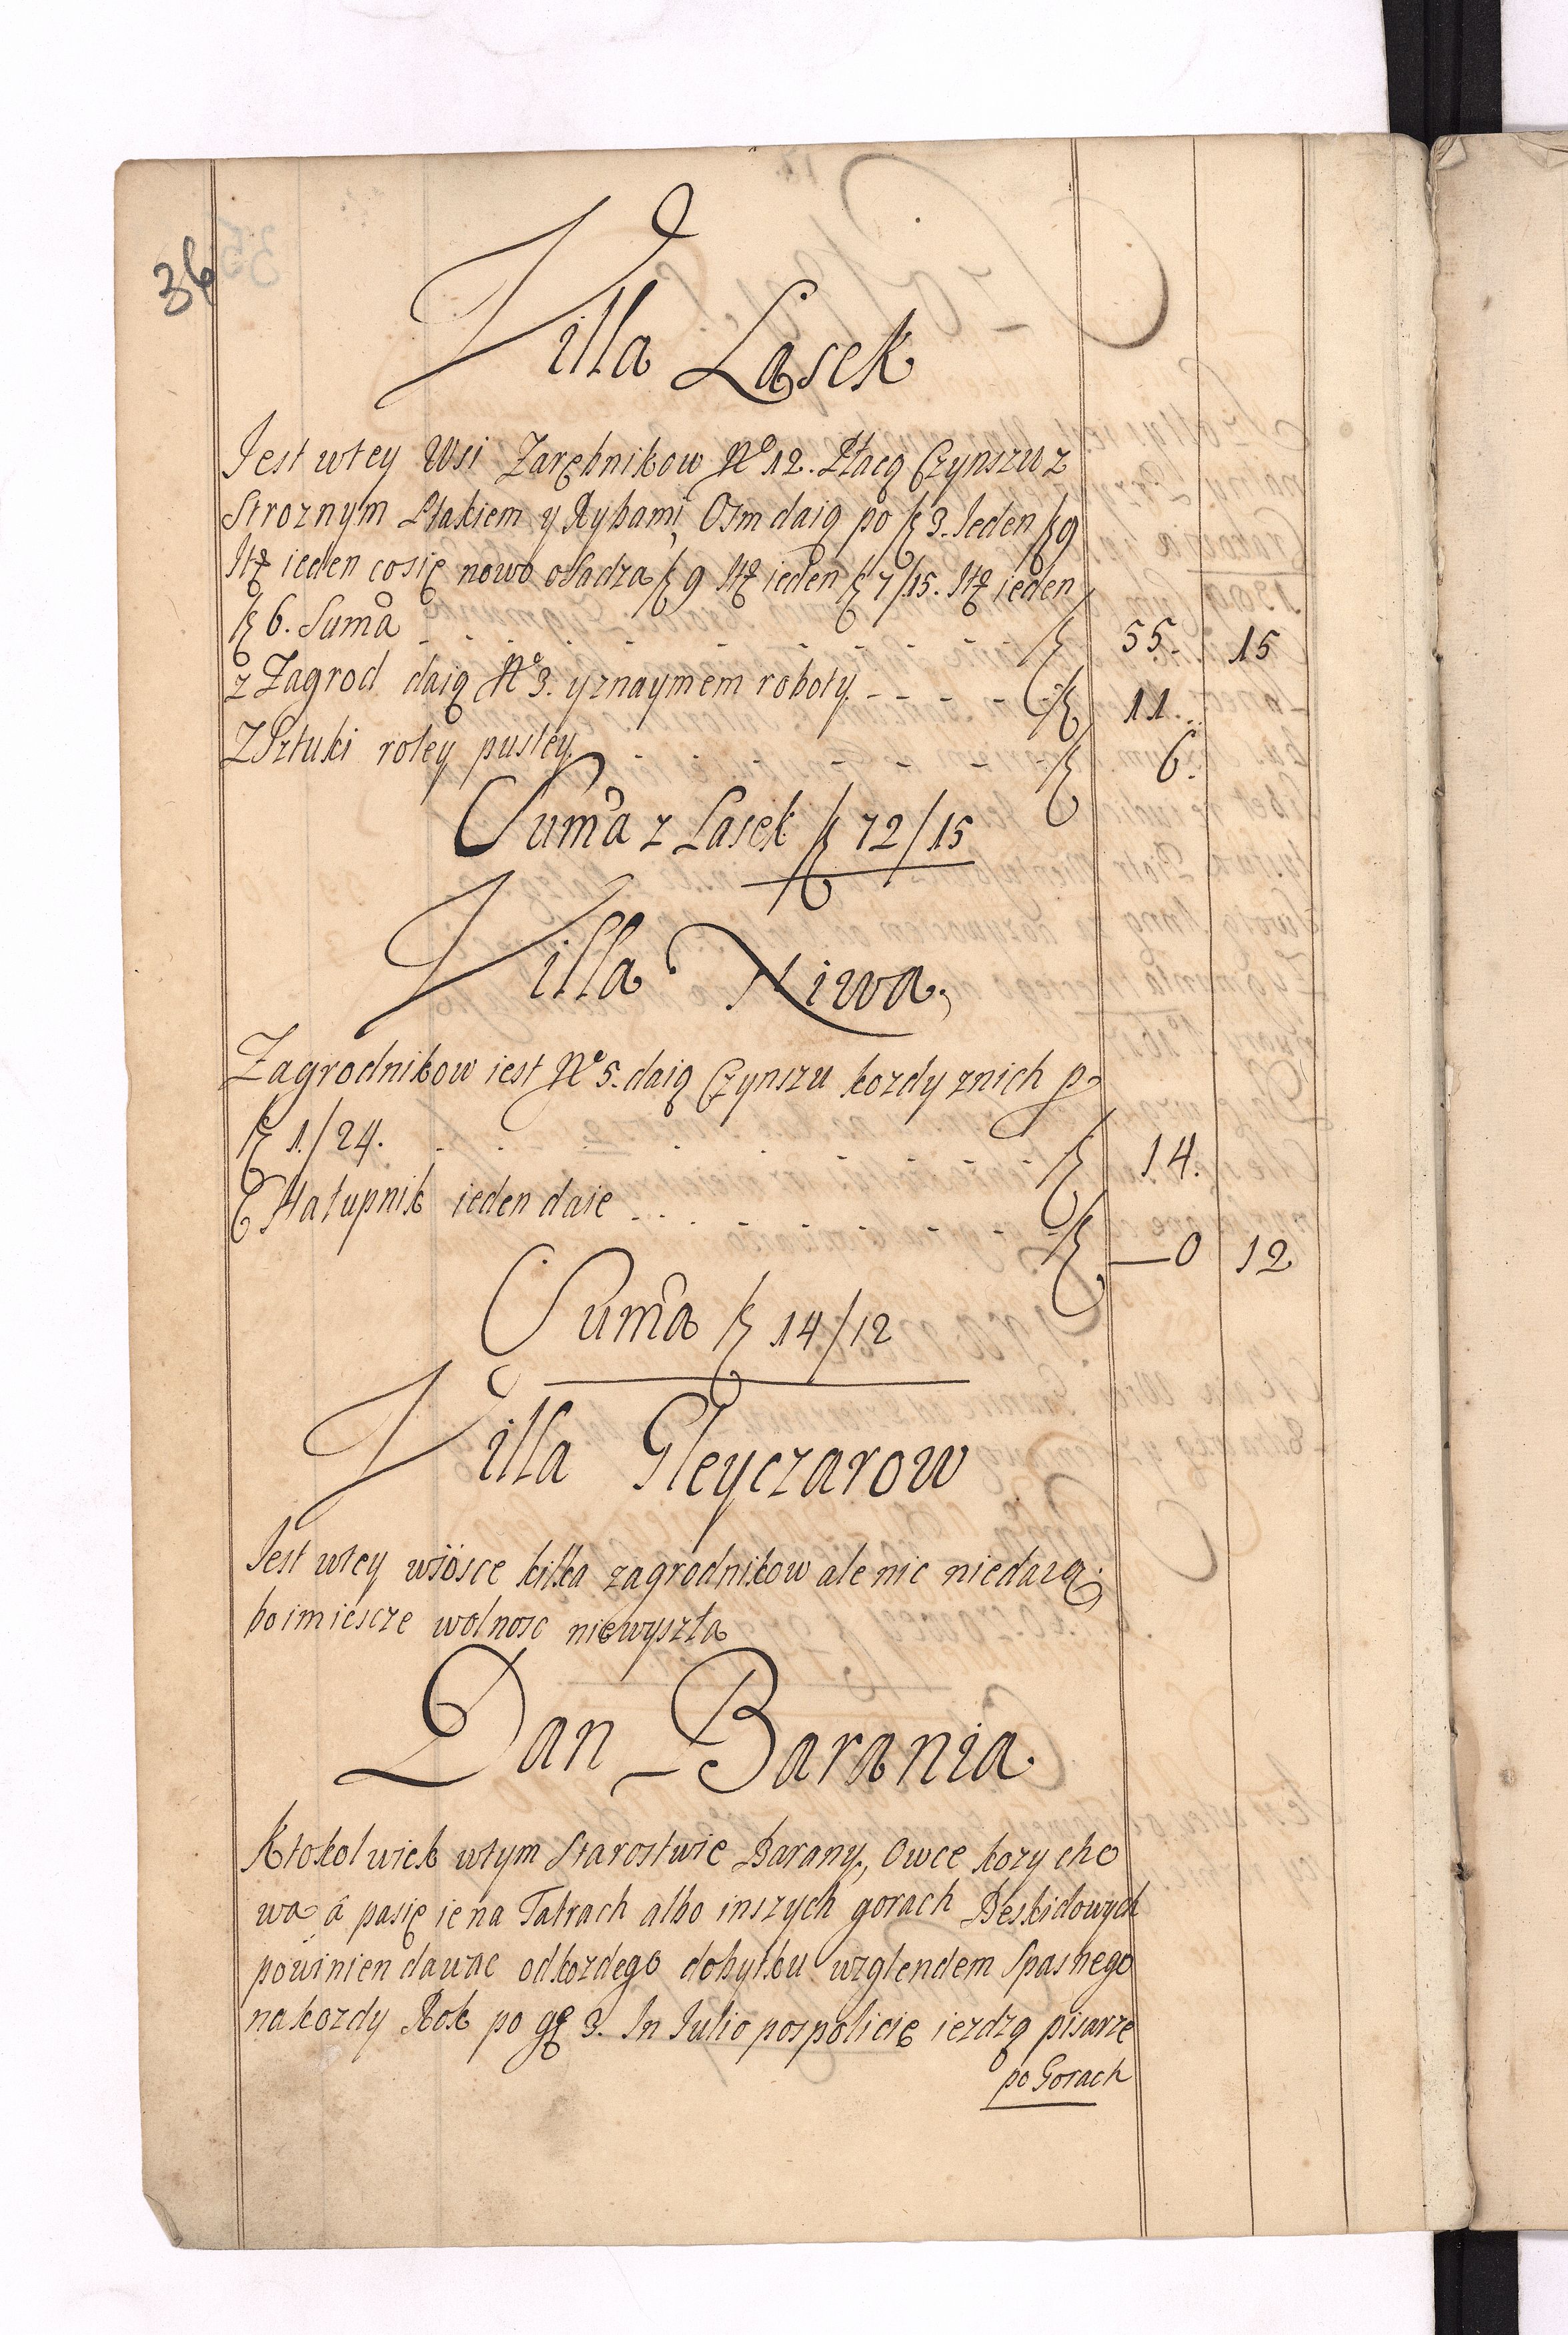 36
Villa Lasek
Jest wtey Wsi Zarębnikow No 12. Płacą Czynszu z
Stroznym Ptakiem y Rybami, Osm daią po f 3. Jeden f 9
Itę ieden cosię nowo osadza f 9 Itę ieden f 7/15. Itę ieden
f 6. Suma - - - - - f 55. 15
z Zagrod daią No 3. yznaymem roboty - - - - f 11.
Z Sztuki roley pustey. - - - - f 6.
Suma z Lasek f 72/15
Villa Niwa.
Zagrodnikow iest No 5. daią Czynszu kozdy znich po
f 1./24. - - - - - f 14.
Chałupnik ieden daie - - - - - f —0 12
Suma f 14/12
Villa Gleyczarow
Jest wtey wiosce kilka zagrodnikow ale nic niedaią.
bo im iescze wolnosc niewyszła
Dan - Barania
Ktokolwiek wtym Starostwie Barany, Owce kozy cho
wa á pasię ie na Tatrach albo inszych gorach Beskidowych
powinien dawac odkozdego dobytku wzglendem Spasnego
nakozdy Rok po gę 3. In Julio pospolicie iezdzą pisarze
po Gorach